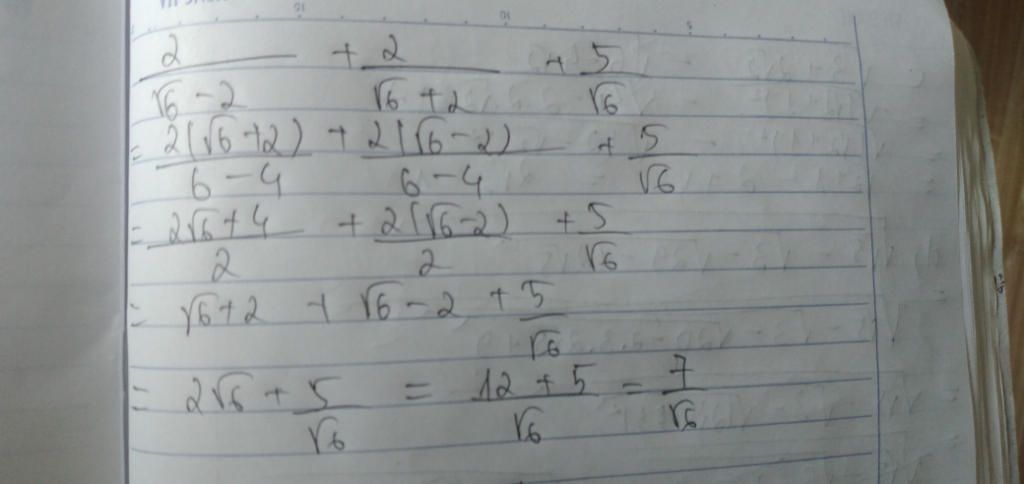 2/(√6 - 2) + 2/(√6 + 2) + 5/√6
= 2(√6 + 2)/(6 - 4) + 2(√6 - 2)/(6 - 4) + 5/√6
= (2√6 + 4)/2 + 2(√6 - 2)/2 + 5/√6
= √6 + 2 + √6 - 2 + 5/√6
= 2√6 + 5/√6 = (12 + 5)/√6 = 7/√6